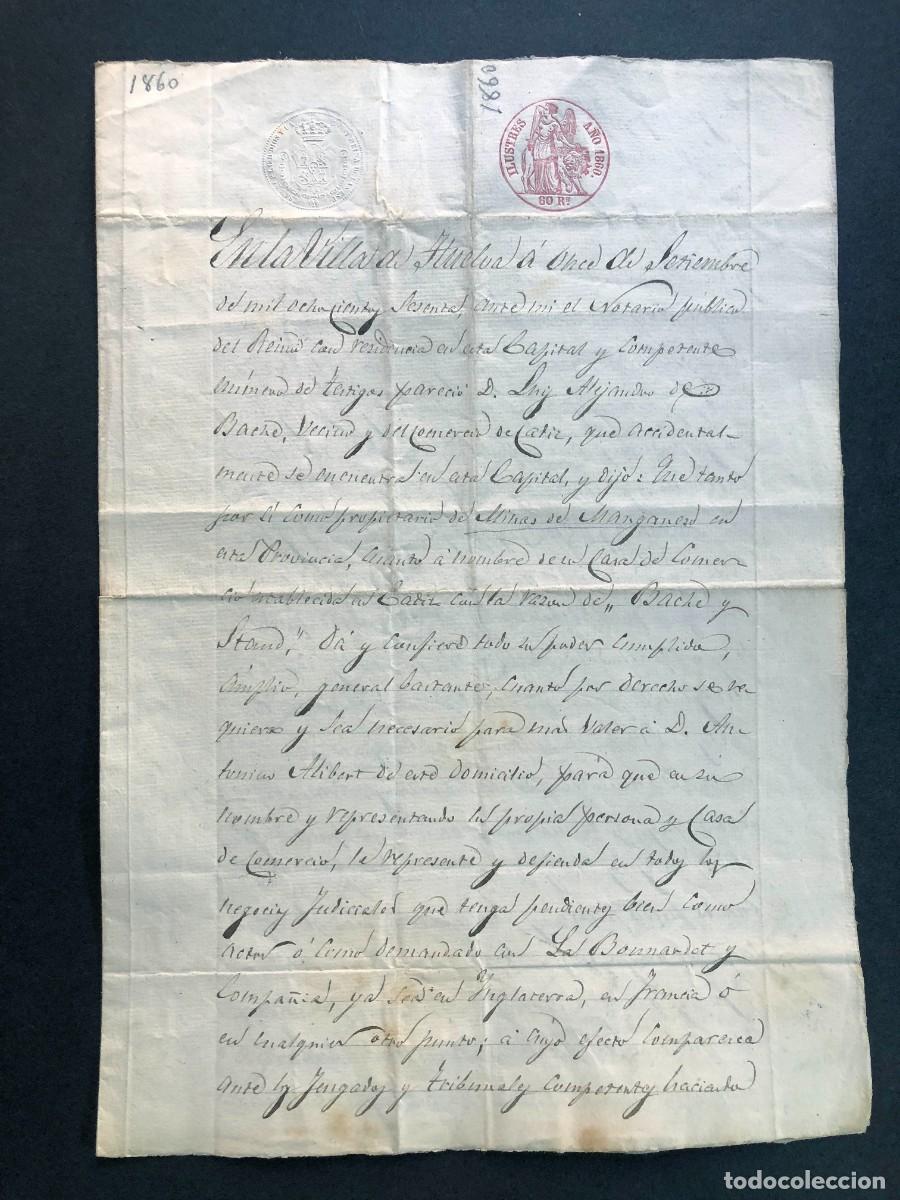 1860
1860
ILUSTRES AÑO 1860.
60 Rs
En la Villa de Huelva á once de Setiembre
de mil ochocientos Sesenta, ante mi el Notario público
del Reino con residencia en esta Capital y competente
número de testigos pareció D. Luis Alejandro de
Bache, Vecino y del Comercio de Cadiz, que accidental-
mente se encuentra en esta Capital, y dijo: Que tanto
por sí como propietario de Minas de Manganeso en
esta Provincia, cuanto á nombre de su Casa de Comer
cio establecida en Cadiz con la razon de „Bache y
Stand," Dá y confiere todo su poder cumplido,
ámplio, general bastante, cuanto por derecho se re
quiera y sea necesario para mas valer á D. An-
tonino Alibert de este domicilio, para que en su
nombre y representando su propia persona y Casa
de Comercio, le represente y defienda en todos los
negocios Judiciales que tenga pendientes bien como
actor ó como demandado con La Bonnardet y
Compañia, ya sea en Ynglaterra, en Francia ó
en cualquier otro punto; á cuyo efecto comparezca
ante los Juzgados y tribunales competentes haciendo
todocoleccion